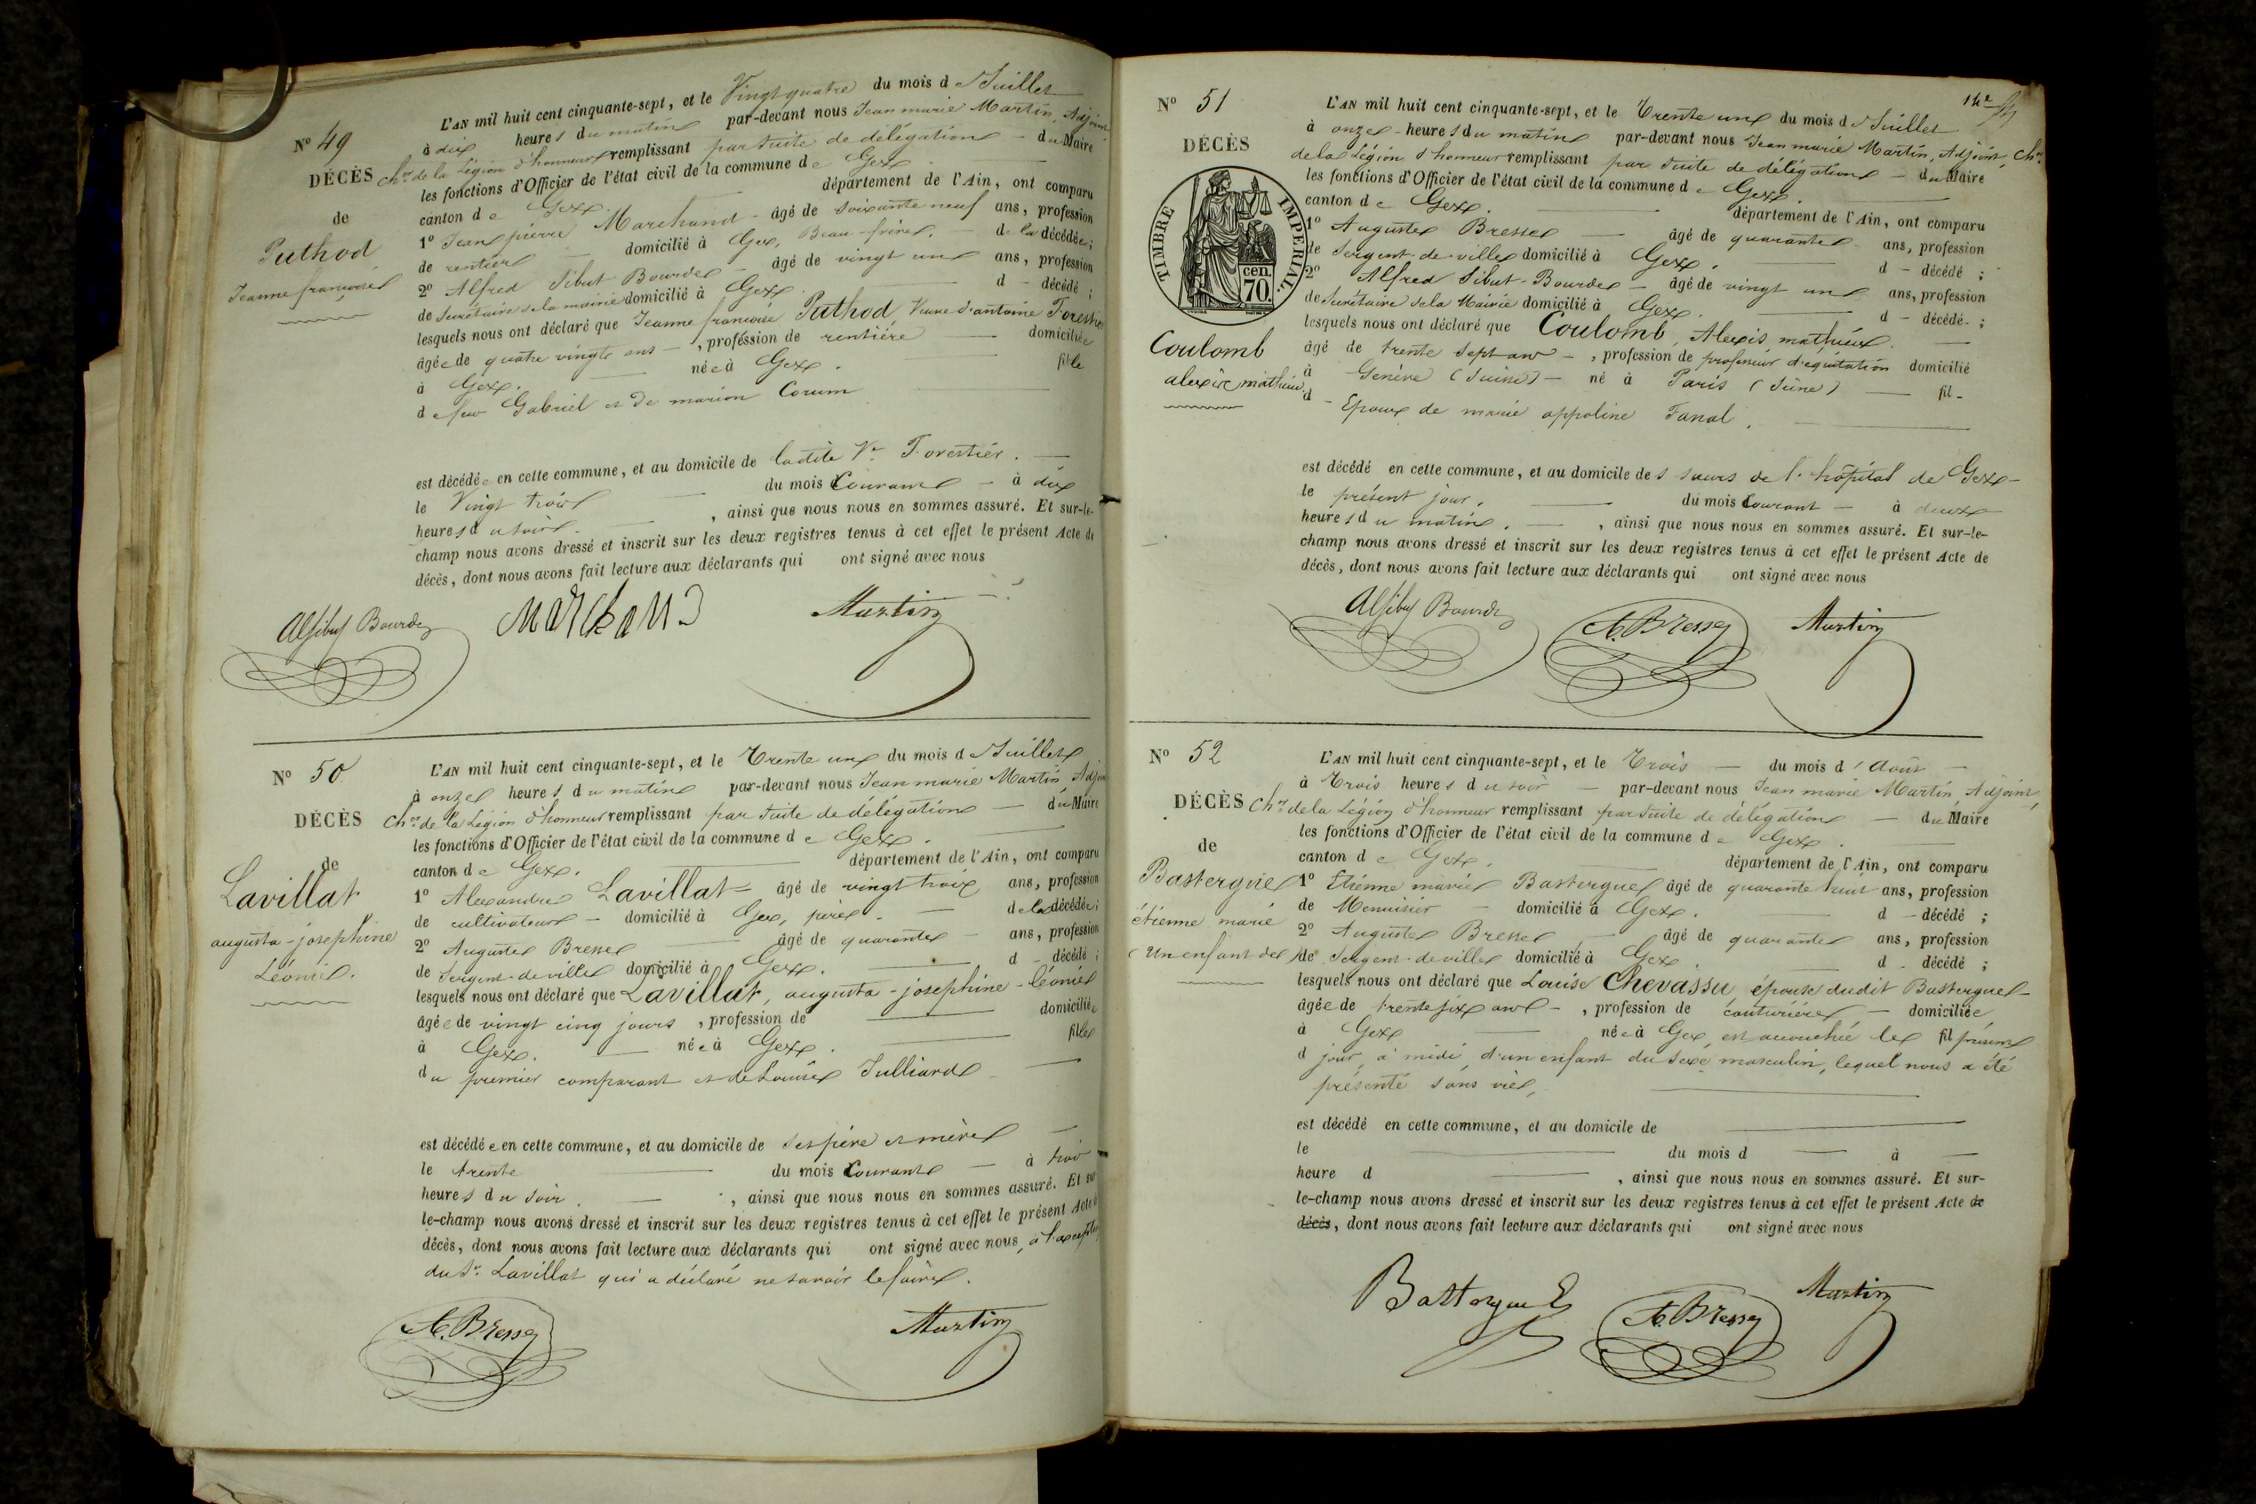 N° 49
DÉCÈS
de
Puthod
Jeanne françoise
L'AN mil huit cent cinquante-sept, et le Vingt quatre du mois de Juillet
à dix heures du matin par-devant nous Jean marie Martin, Adjoint
Ch.er de la Légion d'honneur remplissant par suite de délégation du Maire
les fonctions d'Officier de l'état civil de la commune de Gex.
canton de Gex. département de l'Ain, ont comparu
1° Jean pierre Marchand âgé de soixante neuf ans, profession
de rentier domicilié à Gex, Beau-frère. de la décédée;
2° Alfred Sibut Bourde âgé de vingt un ans, profession
de Secrétaire de la mairie domicilié à Gex. d décédé;
lesquels nous ont déclaré que Jeanne françoise Puthod Veuve d'antoine Forestier
âgée de quatre vingts ans, profession de rentière domiciliée
à Gex. née à Gex. fille
de feu Gabriel et de marion Corum
est décédée en cette commune, et au domicile de ladite Ve Forestier.
le Vingt trois du mois Courant à dix
heures du soir. , ainsi que nous nous en sommes assuré. Et sur-le-
champ nous avons dressé et inscrit sur les deux registres tenus à cet effet le présent Acte de
décès, dont nous avons fait lecture aux déclarants qui ont signé avec nous
Alf Sibut Bourde Marchand Martin
N° 50.
DÉCÈS
de
Lavillat
augusta-joséphine
Léonie.
L'AN mil huit cent cinquante-sept, et le Trente un du mois de Juillet
à onze heures du matin par-devant nous Jean marie Martin Adjoint
Ch.er de la Légion d'honneur remplissant par suite de délégation du Maire
les fonctions d'Officier de l'état civil de la commune de Gex.
canton de Gex. département de l'Ain, ont comparu
1° Alexandre Lavillat âgé de vingt trois ans, profession
de cultivateur domicilié à Gex, père. de la décédée;
2° Auguste Bresse âgé de quarante ans, profession
de Sergent-de-ville domicilié à Gex. d décédé;
lesquels nous ont déclaré que Lavillat, augusta-joséphine-léonie
âgée de vingt cinq jours, profession de domiciliée
à Gex. née à Gex. fille
du premier comparant et de Louise Julliard
est décédée en cette commune, et au domicile de ses père et mère
le trente du mois Courant à trois
heures du soir. , ainsi que nous nous en sommes assuré. Et sur
le-champ nous avons dressé et inscrit sur les deux registres tenus à cet effet le présent Acte de
décès, dont nous avons fait lecture aux déclarants qui ont signé avec nous, à l'exception
du Sr. Lavillat qui a déclaré ne savoir le faire.
A. Bresse Martin
N° 51
DÉCÈS
TIMBRE IMPÉRIAL
cen.
70.
Coulomb
alexis mathieu
L'AN mil huit cent cinquante-sept, et le Trente un du mois de Juillet
à onze heures du matin par-devant nous Jean marie Martin, Adjoint, Ch.er
de la Légion d'honneur remplissant par suite de délégation du Maire
les fonctions d'Officier de l'état civil de la commune de Gex.
canton de Gex. département de l'Ain, ont comparu
1° Auguste Bresse âgé de quarante ans, profession
de Sergent-de-ville domicilié à Gex. d décédé;
2° Alfred Sibut-Bourde âgé de vingt un ans, profession
de Secrétaire de la Mairie domicilié à Gex. d décédé;
lesquels nous ont déclaré que Coulomb, Alexis mathieu.
âgé de trente sept ans, profession de professeur d'équitation domicilié
à Genève (Suisse) né à Paris (Seine) fil
d Epoux de marie appoline Fanal.
est décédé en cette commune, et au domicile des sœurs de l'hôpital de Gex
le présent jour. du mois Courant à deux
heures du matin. , ainsi que nous nous en sommes assuré. Et sur-le-
champ nous avons dressé et inscrit sur les deux registres tenus à cet effet le présent Acte de
décès, dont nous avons fait lecture aux déclarants qui ont signé avec nous
Alf Sibut Bourde A. Bresse Martin
N° 52
DÉCÈS
de
Bastergue
étienne marie
(Un enfant de)
L'AN mil huit cent cinquante-sept, et le Trois du mois d'Août
à Trois heures du soir par-devant nous Jean marie Martin Adjoint,
Ch.er de la Légion d'honneur remplissant par suite de délégation du Maire
les fonctions d'Officier de l'état civil de la commune de Gex.
canton de Gex. département de l'Ain, ont comparu
1° Etienne marie Bastergue âgé de quarante huit ans, profession
de Menuisier domicilié à Gex. d décédé;
2° Auguste Bresse âgé de quarante ans, profession
de Sergent-de-ville domicilié à Gex. d décédé;
lesquels nous ont déclaré que Louise Chevassu épouse dudit Bastergue
âgée de trente six ans, profession de couturière domiciliée
à Gex née à Gex, est accouchée le fil présent
d jour, à midi, d'un enfant du sexe masculin, lequel nous a été
présenté sans vie,
est décédé en cette commune, et au domicile de
le du mois d à
heure d , ainsi que nous nous en sommes assuré. Et sur-
le-champ nous avons dressé et inscrit sur les deux registres tenus à cet effet le présent Acte de
décès, dont nous avons fait lecture aux déclarants qui ont signé avec nous
Bastergue E A. Bresse Martin